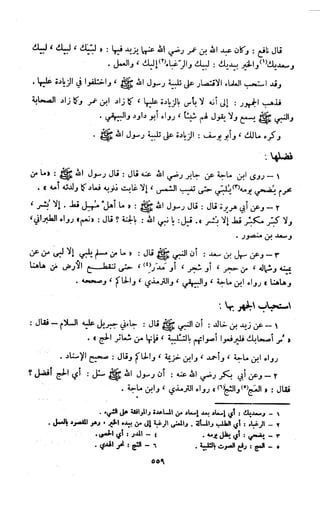 قال نافع : وكان عبد الله بن عمر رضي الله عنهما يزيد فيها : « لبيك ، لبيك ، لبيك
وسعديك(١) والخير بيديك : لبيك والرغباء(٢) إليك ، والعمل .
وقد استحب العلماء الاقتصار على تلبية رسول الله ﷺ ، واختلفوا في الزيادة عليها .
فذهب الجمهور : إلى أنه لا بأس بالزيادة عليها ، كما زاد ابن عمر وكما زاد الصحابة
والنبي ﷺ يسمع ولا يقول لهم شيئاً ، رواه أبو داود والبيهقي .
وكره مالك ، وأبو يوسف : الزيادة على تلبية رسول الله ﷺ .
فضلها :
١ – روى ابن ماجة عن جابر رضي الله عنه قال : قال رسول الله ﷺ : « ما من
محرم يضحي يومه(٣) يلبي حتى تغيب الشمس ، إلا غابت ذنوبه فعاد كما ولدته أمه » .
٢ – وعن أبي هريرة قال : قال رسول الله ﷺ : « ما أهل مهل قط . إلا بشر ،
ولا كبر مكبر قط إلا بشر » . قيل : يا نبي الله : بالجنة ؟ قال : « نعم » رواه الطبراني ،
وسعد بن منصور .
٣ – وعن سهل بن سعد : أن النبي ﷺ قال : « ما من مسلم يلبي إلا لبى من عن
يمينه وشماله ، من حجر ، أو شجر ، أو مدر(٤) ، حتى تنقطع الأرض من هاهنا
وهاهنا » رواه ابن ماجة ، والبيهقي ، والترمذي ، والحاكم ، وصححه .
استحباب الجهر بها :
١ – عن زيد بن خالد : أن النبي ﷺ قال : جاءني جبريل عليه السلام – فقال :
« مر أصحابك فليرفعوا أصواتهم بالتلبية ، فإنها من شعائر الحج » .
رواه ابن ماجة ، وأحمد ، وابن خزيمة ، والحاكم وقال : صحيح الإسناد .
٢ – وعن أبي بكر رضي الله عنه : أن رسول الله ﷺ سئل : أي الحج أفضل ؟
فقال : « العج(٥) والثج(٦) » رواه الترمذي ، وابن ماجة .
١ – وسعديك : أي إسعاد بعد إسعاد من المساعدة والموافقة على الشيء .
٢ – الرغباء : أي الطلب والمسألة . والمعنى الرغبة إلى من بيده الخير ، وهو المقصود بالعمل .
٣ – يضحي : أي يظل يومه . ٤ – المدر : أي الحصى .
٥ – العج : رفع الصوت بالتلبية . ٦ – الثج : نحر الهدي .
٥٥٩